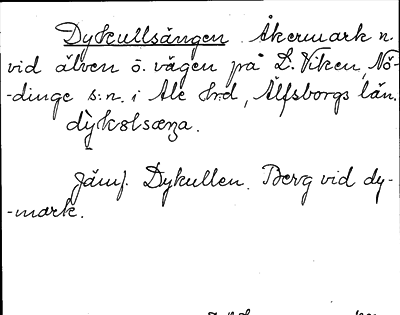 Dykullsängen Åkermark n.
vid älven ö. vägen på L. Viken, Nö-
-dinge s:n. i Ale Hrd, Älfsborgs län.
Jämf. Dykullen. Berg vid dy-
-mark.